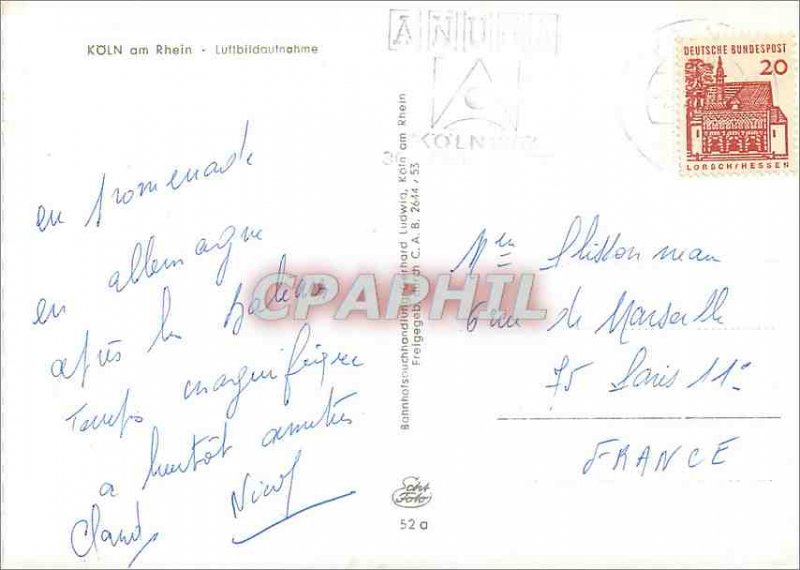 KÖLN am Rhein - Luftbildaufnahme
en promenade
en allemagne
après la
Temps magnifique
a bientôt amitiés
Claud Nicol
Bahnhofsbuchhandlung Gerhard Ludwig, Köln am Rhein
Freigegeben durch C. A. B. 2644 / 53
Echt
Foto
52 a
ANUGA
KÖLN
DEUTSCHE BUNDESPOST
20
LORSCH/HESSEN
6 rue de Marseille
75 Paris 11e
FRANCE
CPAPHIL